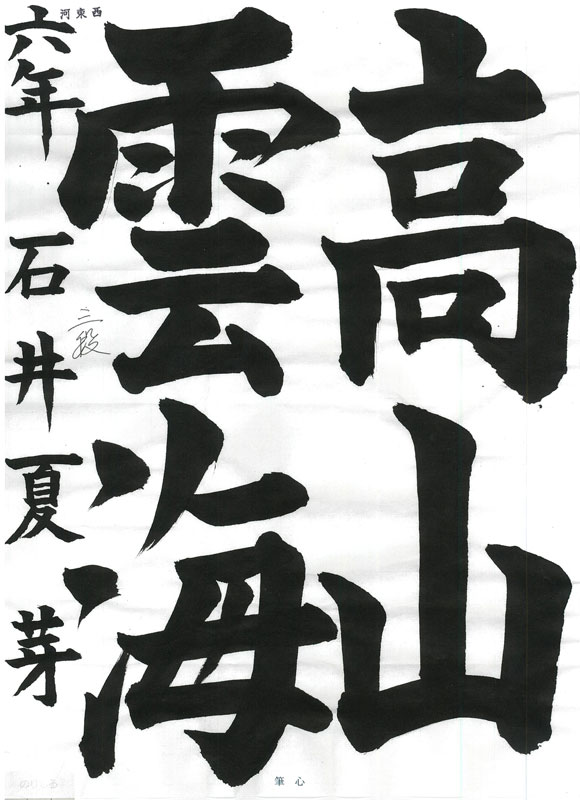 高山
雲海
西東河
六年 石井夏芽
三段
心筆